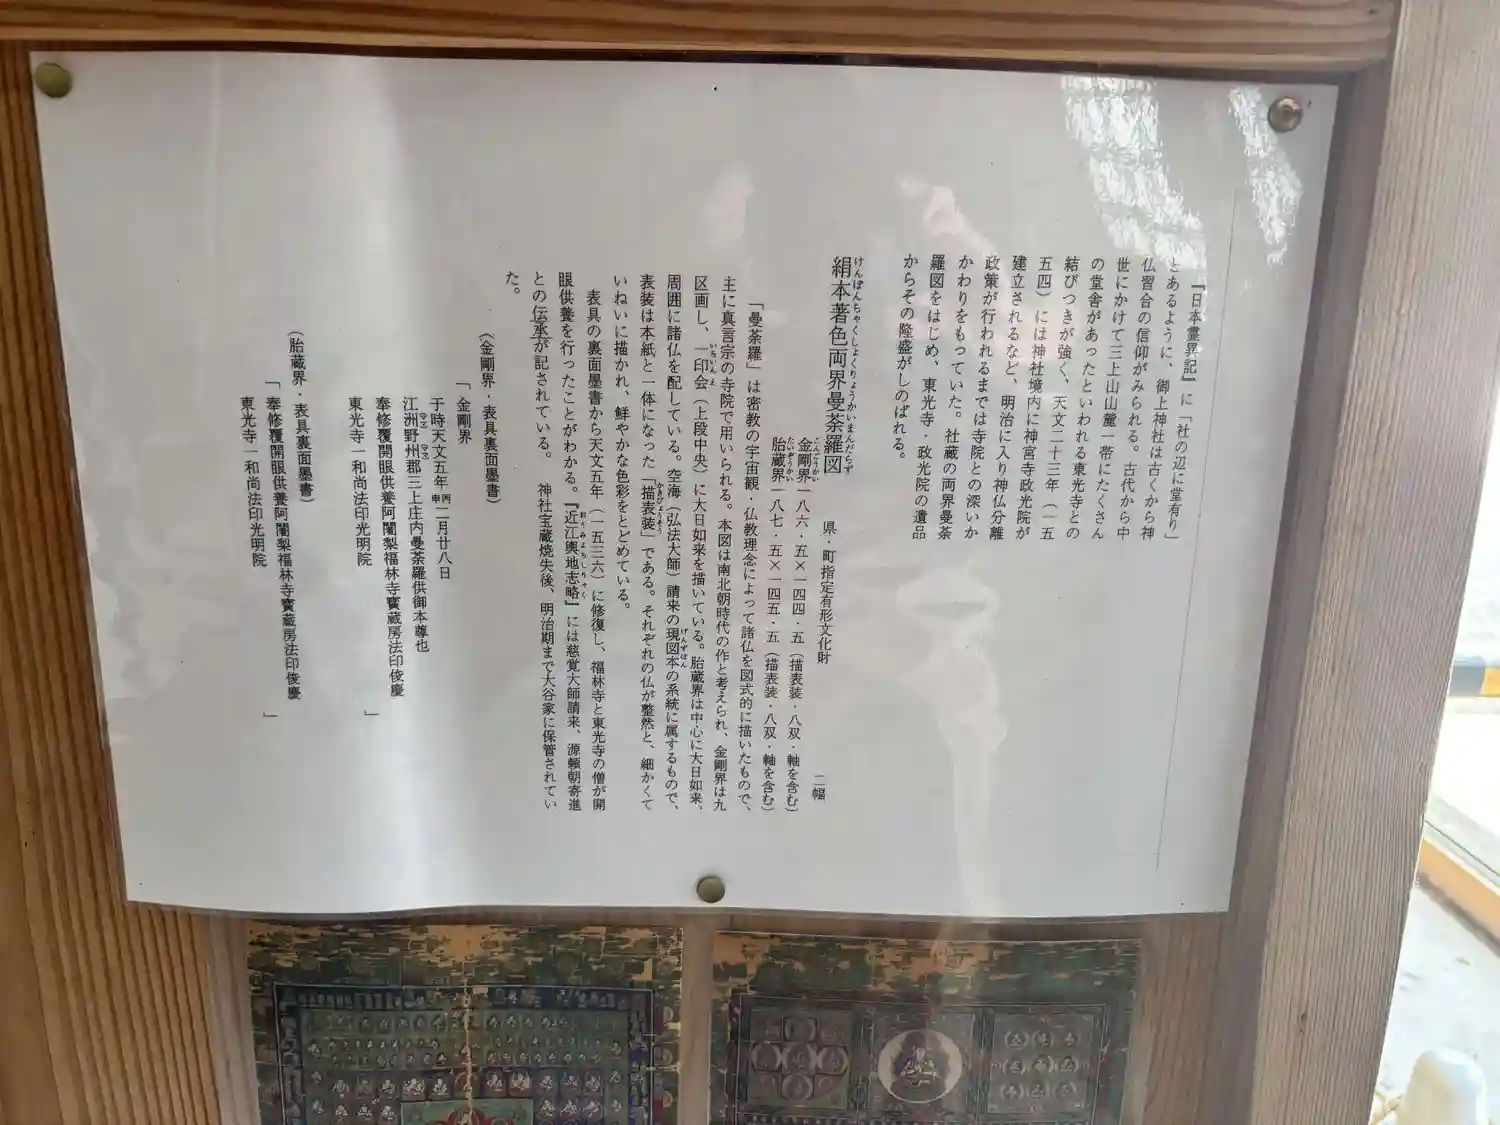 『日本霊異記』に「社の辺に堂有り」
とあるように、御上神社は古くから神
仏習合の信仰がみられる。古代から中
世にかけて三上山山麓一帯にたくさん
の堂舎があったといわれる東光寺との
結びつきが強く、天文二十三年（一五
五四）には神社境内に神宮寺政光院が
建立されるなど、明治に入り神仏分離
政策が行われるまでは寺院との深いか
かわりをもっていた。社蔵の両界曼荼
羅図をはじめ、東光寺・政光院の遺品
からその隆盛がしのばれる。
けんぽんちゃくしょくりょうかいまんだらず
絹本著色両界曼荼羅図
県・町指定有形文化財
二幅
こんごうかい
金剛界一八六・五×一四四・五（描表装・八双・軸を含む）
たいぞうかい
胎蔵界一八七・五×一四五・五（描表装・八双・軸を含む）
「曼荼羅」は密教の宇宙観・仏教理念によって諸仏を図式的に描いたもので、
主に真言宗の寺院で用いられる。本図は南北朝時代の作と考えられ、金剛界は九
区画し、一印会（上段中央）に大日如来を描いている。胎蔵界は中心に大日如来、
いちいんえ
周囲に諸仏を配している。空海（弘法大師）請来の現図本の系統に属するもので、
げんずほん
表装は本紙と一体になった「描表装」である。それぞれの仏が整然と、細かくて
かきびょうそう
いねいに描かれ、鮮やかな色彩をとどめている。
表具の裏面墨書から天文五年（一五三六）に修復し、福林寺と東光寺の僧が開
眼供養を行ったことがわかる。『近江輿地志略』には慈覚大師請来、源頼朝寄進
おうみよちしりゃく
との伝承が記されている。　神社宝蔵焼失後、明治期まで大谷家に保管されてい
た。
（金剛界・表具裏面墨書）
「金剛界
于時天文五年丙申二月廿八日
江洲野州郡三上庄内曼荼羅供御本尊也
ママ　ママ
奉修覆開眼供養阿闍梨福林寺寳蔵房法印俊慶
東光寺一和尚法印光明院　　」
（胎蔵界・表具裏面墨書）
「奉修覆開眼供養阿闍梨福林寺寳蔵房法印俊慶
東光寺一和尚法印光明院　　」